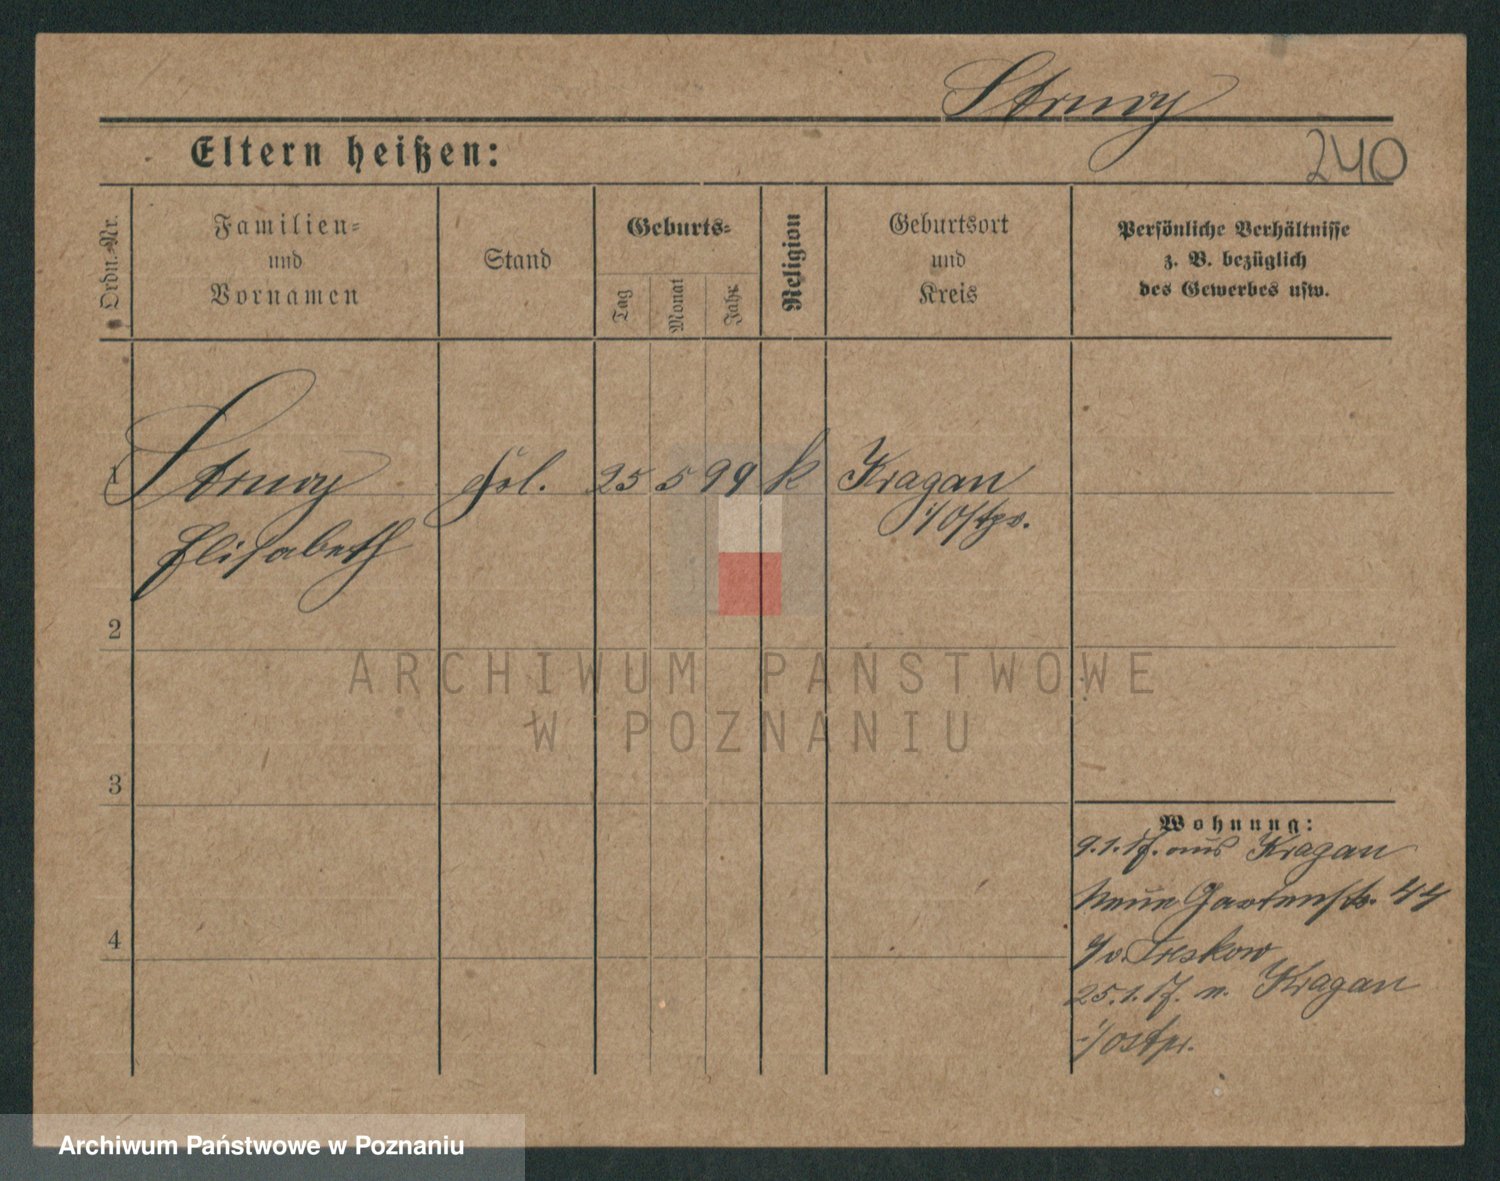 Struvy
240
Eltern heißen:
Ordn.-Nr.
Familien-
und
Vornamen
Stand
Geburts-
Tag
Monat
Jahr.
Religion
Geburtsort
und
Kreis
Persönliche Verhältnisse
z. B. bezüglich
des Gewerbes usw.
1 Struvy Frl. 25 5 99 k Kragan
i/Ostpr.
Elisabeth
2
3
4
Wohnung:
9.1.17. aus Kragan
Neue Gartenstr. 44
b/v. Treskow
25.1.17. n. Kragan
i/Ostpr.
ARCHIWUM PAŃSTWOWE
W POZNANIU
Archiwum Państwowe w Poznaniu